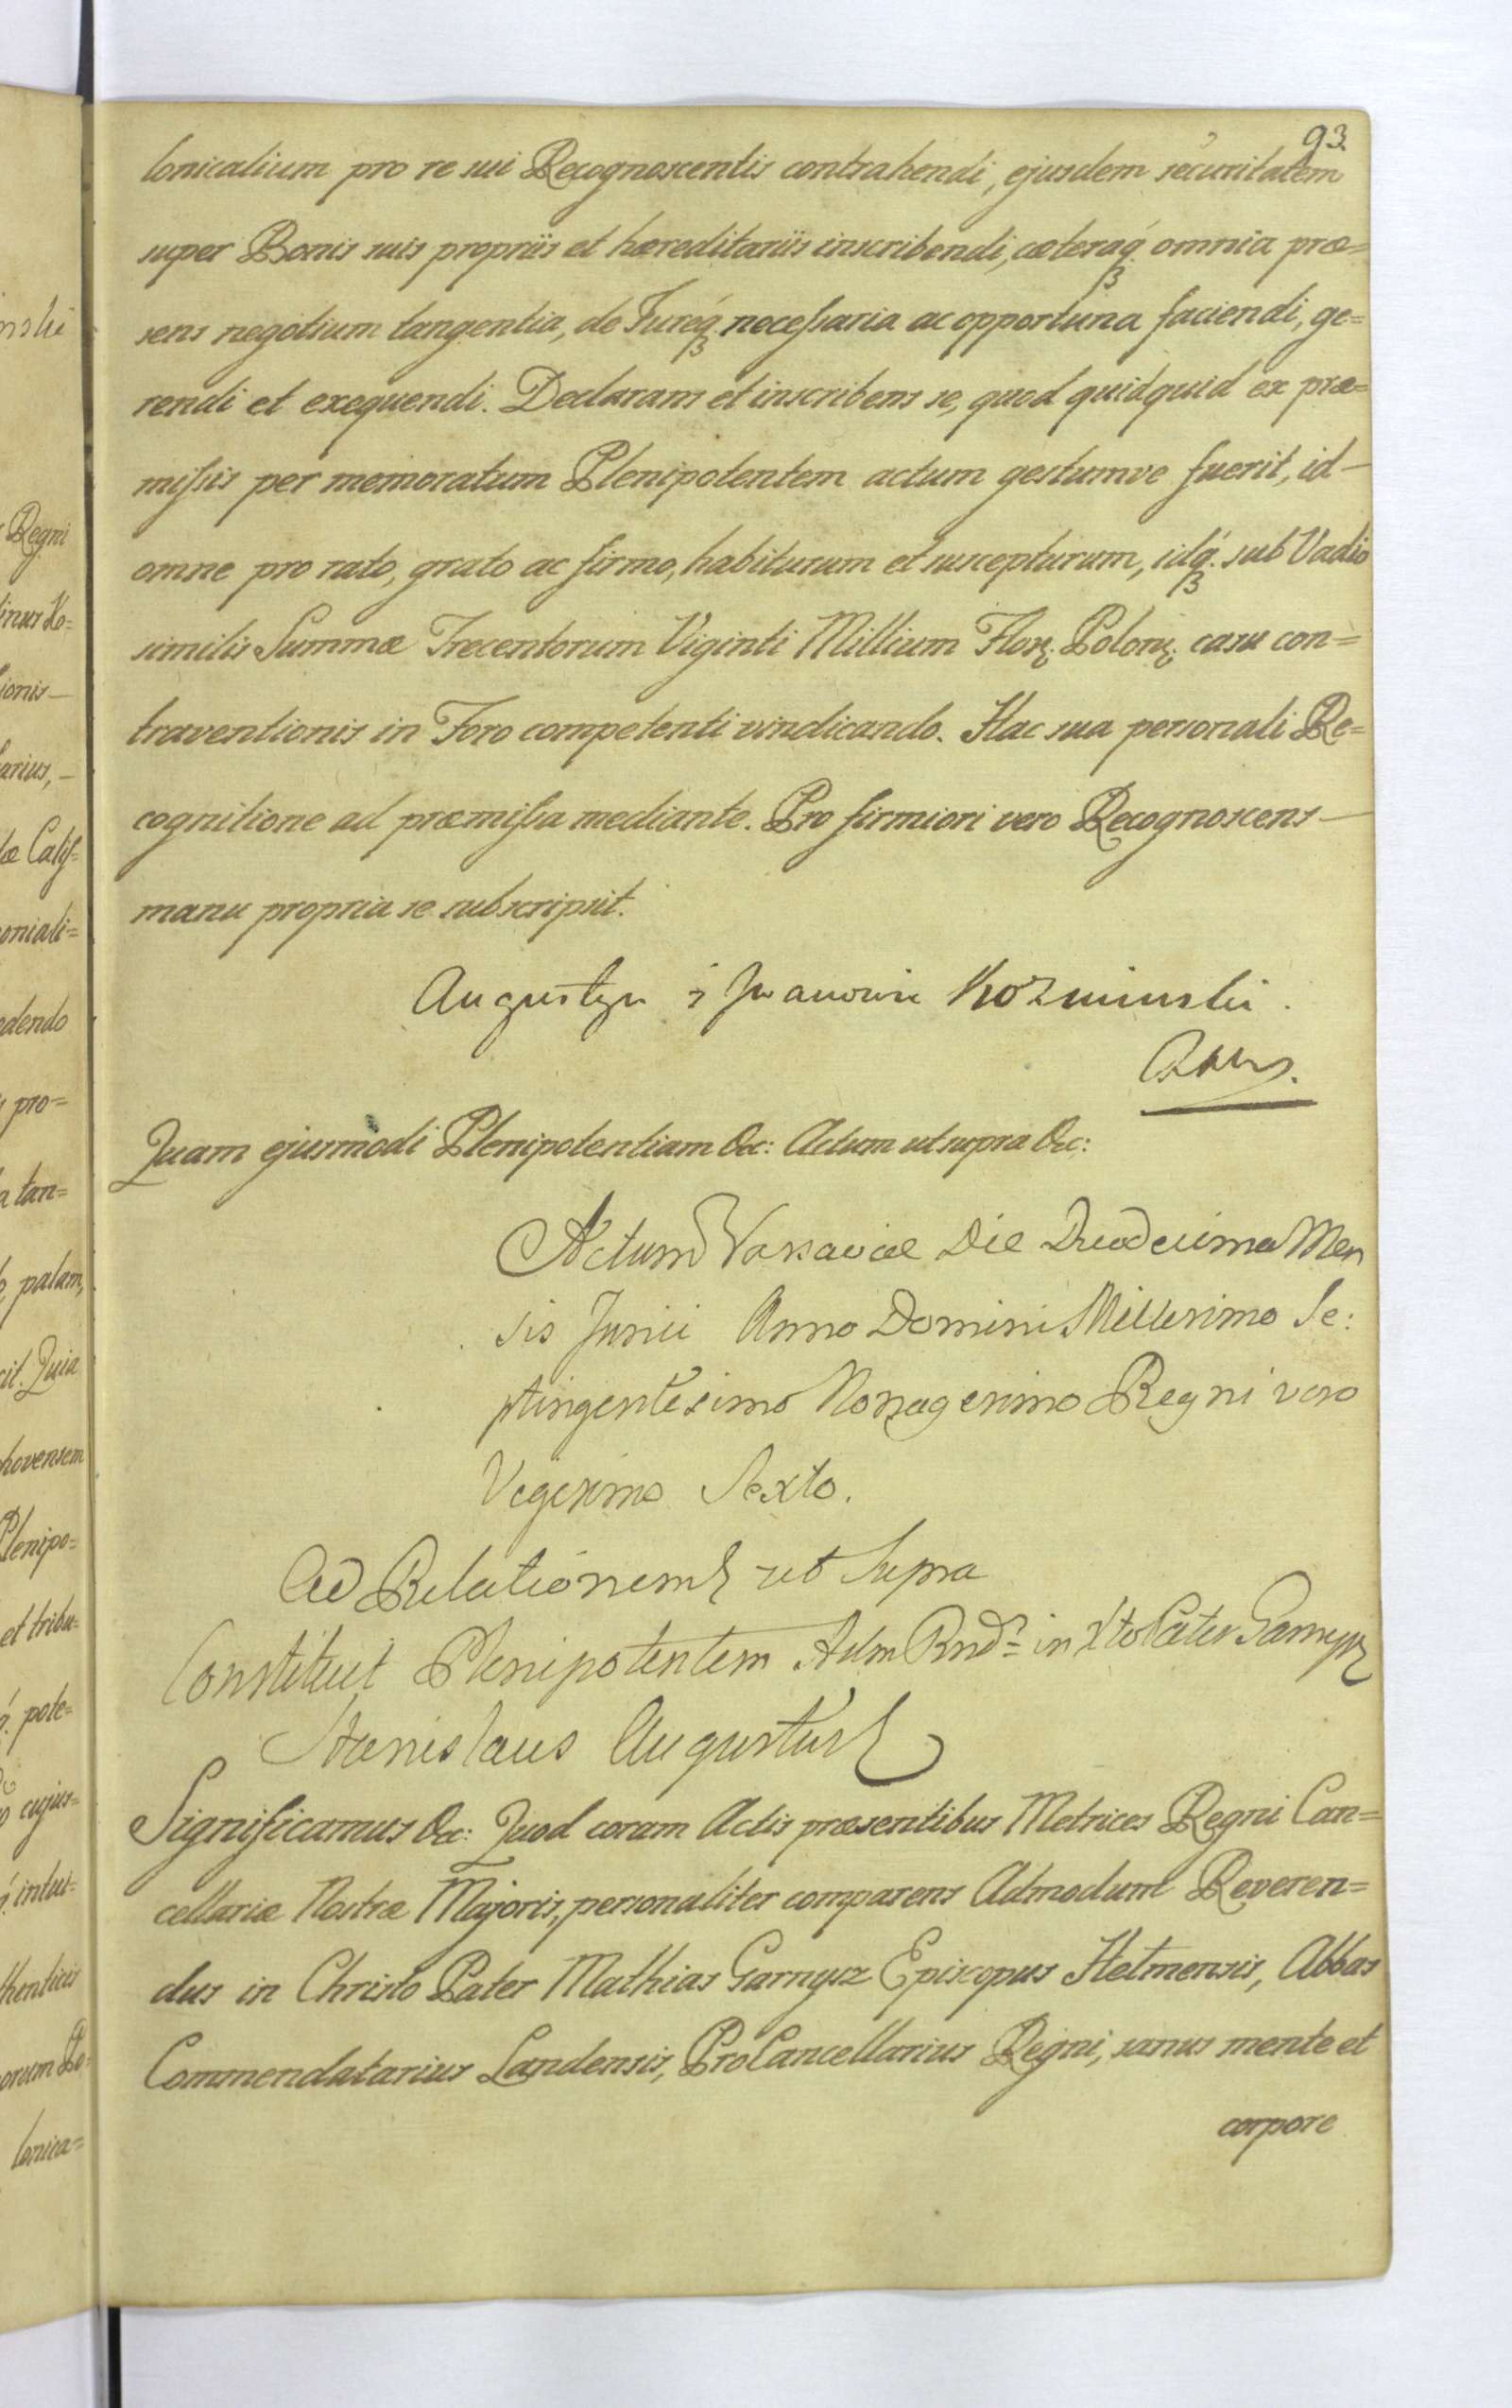 93
lonicalium pro re sui Recognoscentis contrahendi, ejusdem securitatem
super Bonis suis propriis et hæreditariis inscribendi, cæteraq́ꝫ omnia præ=
sens negotium tangentia, de Jureq́ꝫ necessaria ac opportuna faciendi, ge=
rendi et exequendi. Declarans et inscribens se, quod quidquid ex præ=
missis per memoratum Plenipotentem actum gestumve fuerit, id—
omne pro rato, grato ac firmo, habiturum et suscepturum, idq́ꝫ sub Vadio
similis Summæ Trecentorum Viginti Millium Florꝫ Polonꝫ casu con=
traventionis in Foro competenti vindicando. Hac sua personali Re=
cognitione ad præmissa mediante. Pro firmiori vero Recognoscens—
manu propria se subscripsit.
Augustyn Kozminski.
Quam ejusmodi Plenipotentiam &c: Actum ut supra &c:
Actum Varsaviæ Die Duodecima Men
sis Junii Anno Domini Millesimo Se:
ptingentesimo Nonagesimo Regni vero
Vegesimo Sexto.
Ad Relationem ut supra
Constituit Plenipotentem Adm Rnd͠s in Xto Pater Garnysz
Stanislaus Augustus
Significamus &c: Quod coram Actis præsentibus Metrices Regni Can=
cellariæ Nostræ Majoris, personaliter comparens Admodum Reveren=
dus in Christo Pater Mathias Garnysz Episcopus Helmensis, Abbas
Commendatarius Landensis, ProCancellarius Regni, sanus mente et
corpore
Regni
ionis—
arius,—
oniali=
pro=
a tan=
palam,
Quia
hovensem
Plenipo=
et tribu=
pote=
cujus=
intui=
thenticis
lonica=